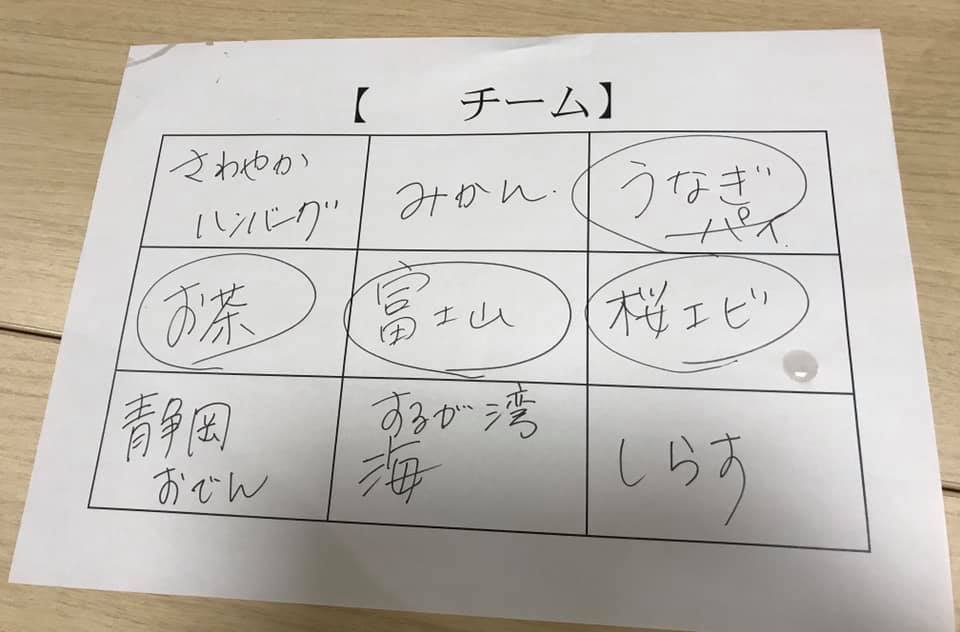 【　　チーム】
さわやか
ハンバーグ
みかん.
うなぎ
パイ.
お茶
富士山
桜エビ
静岡
おでん
するが湾
海
しらす